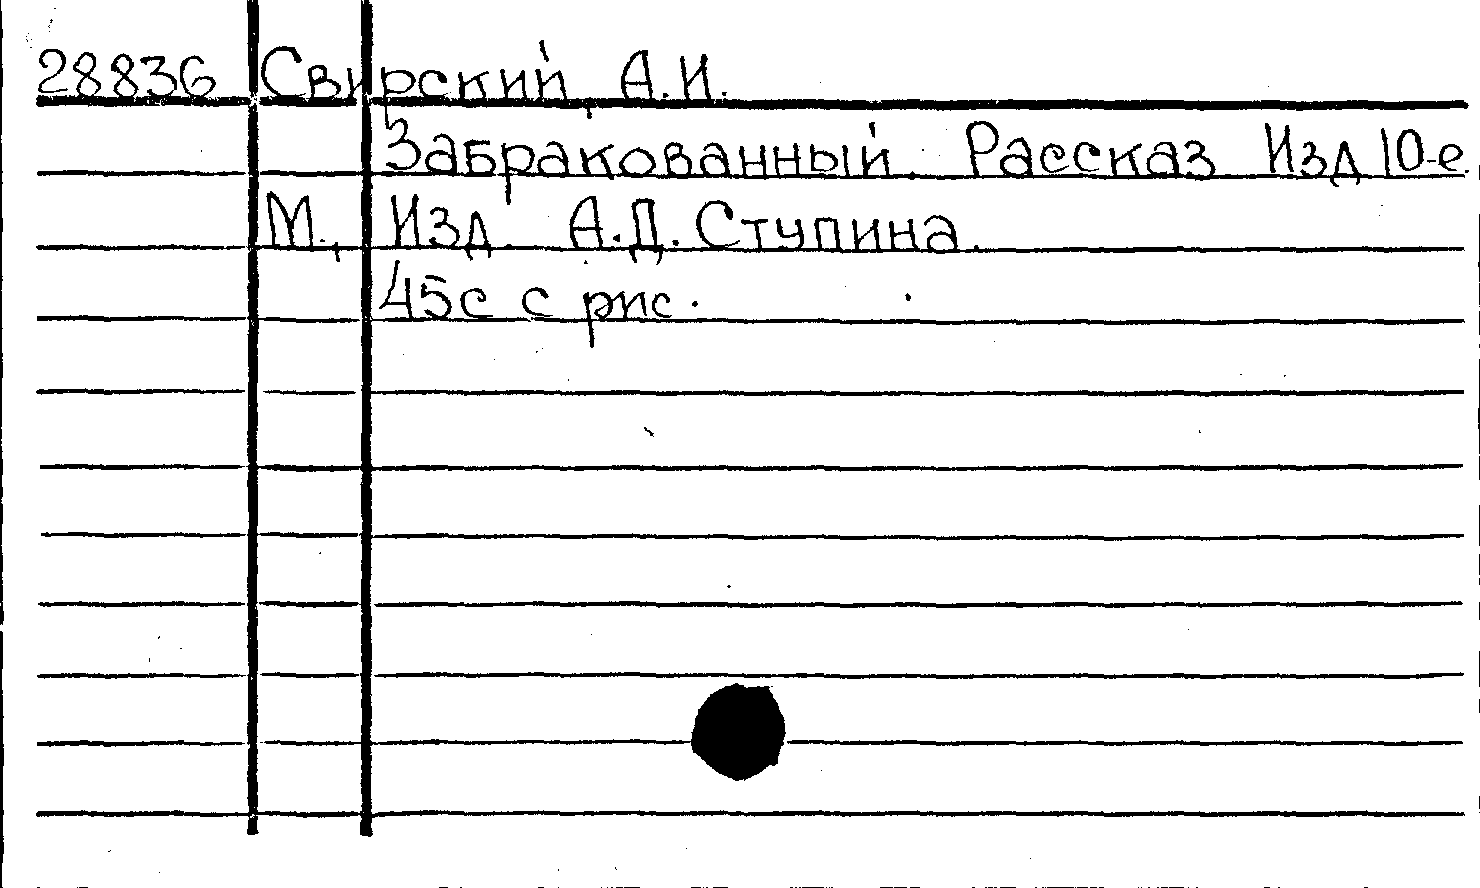 28836 Свирский, А.И.
Забракованный. Рассказ Изд 10-е.
М., Изд. А.Д. Ступина.
45с с рис.